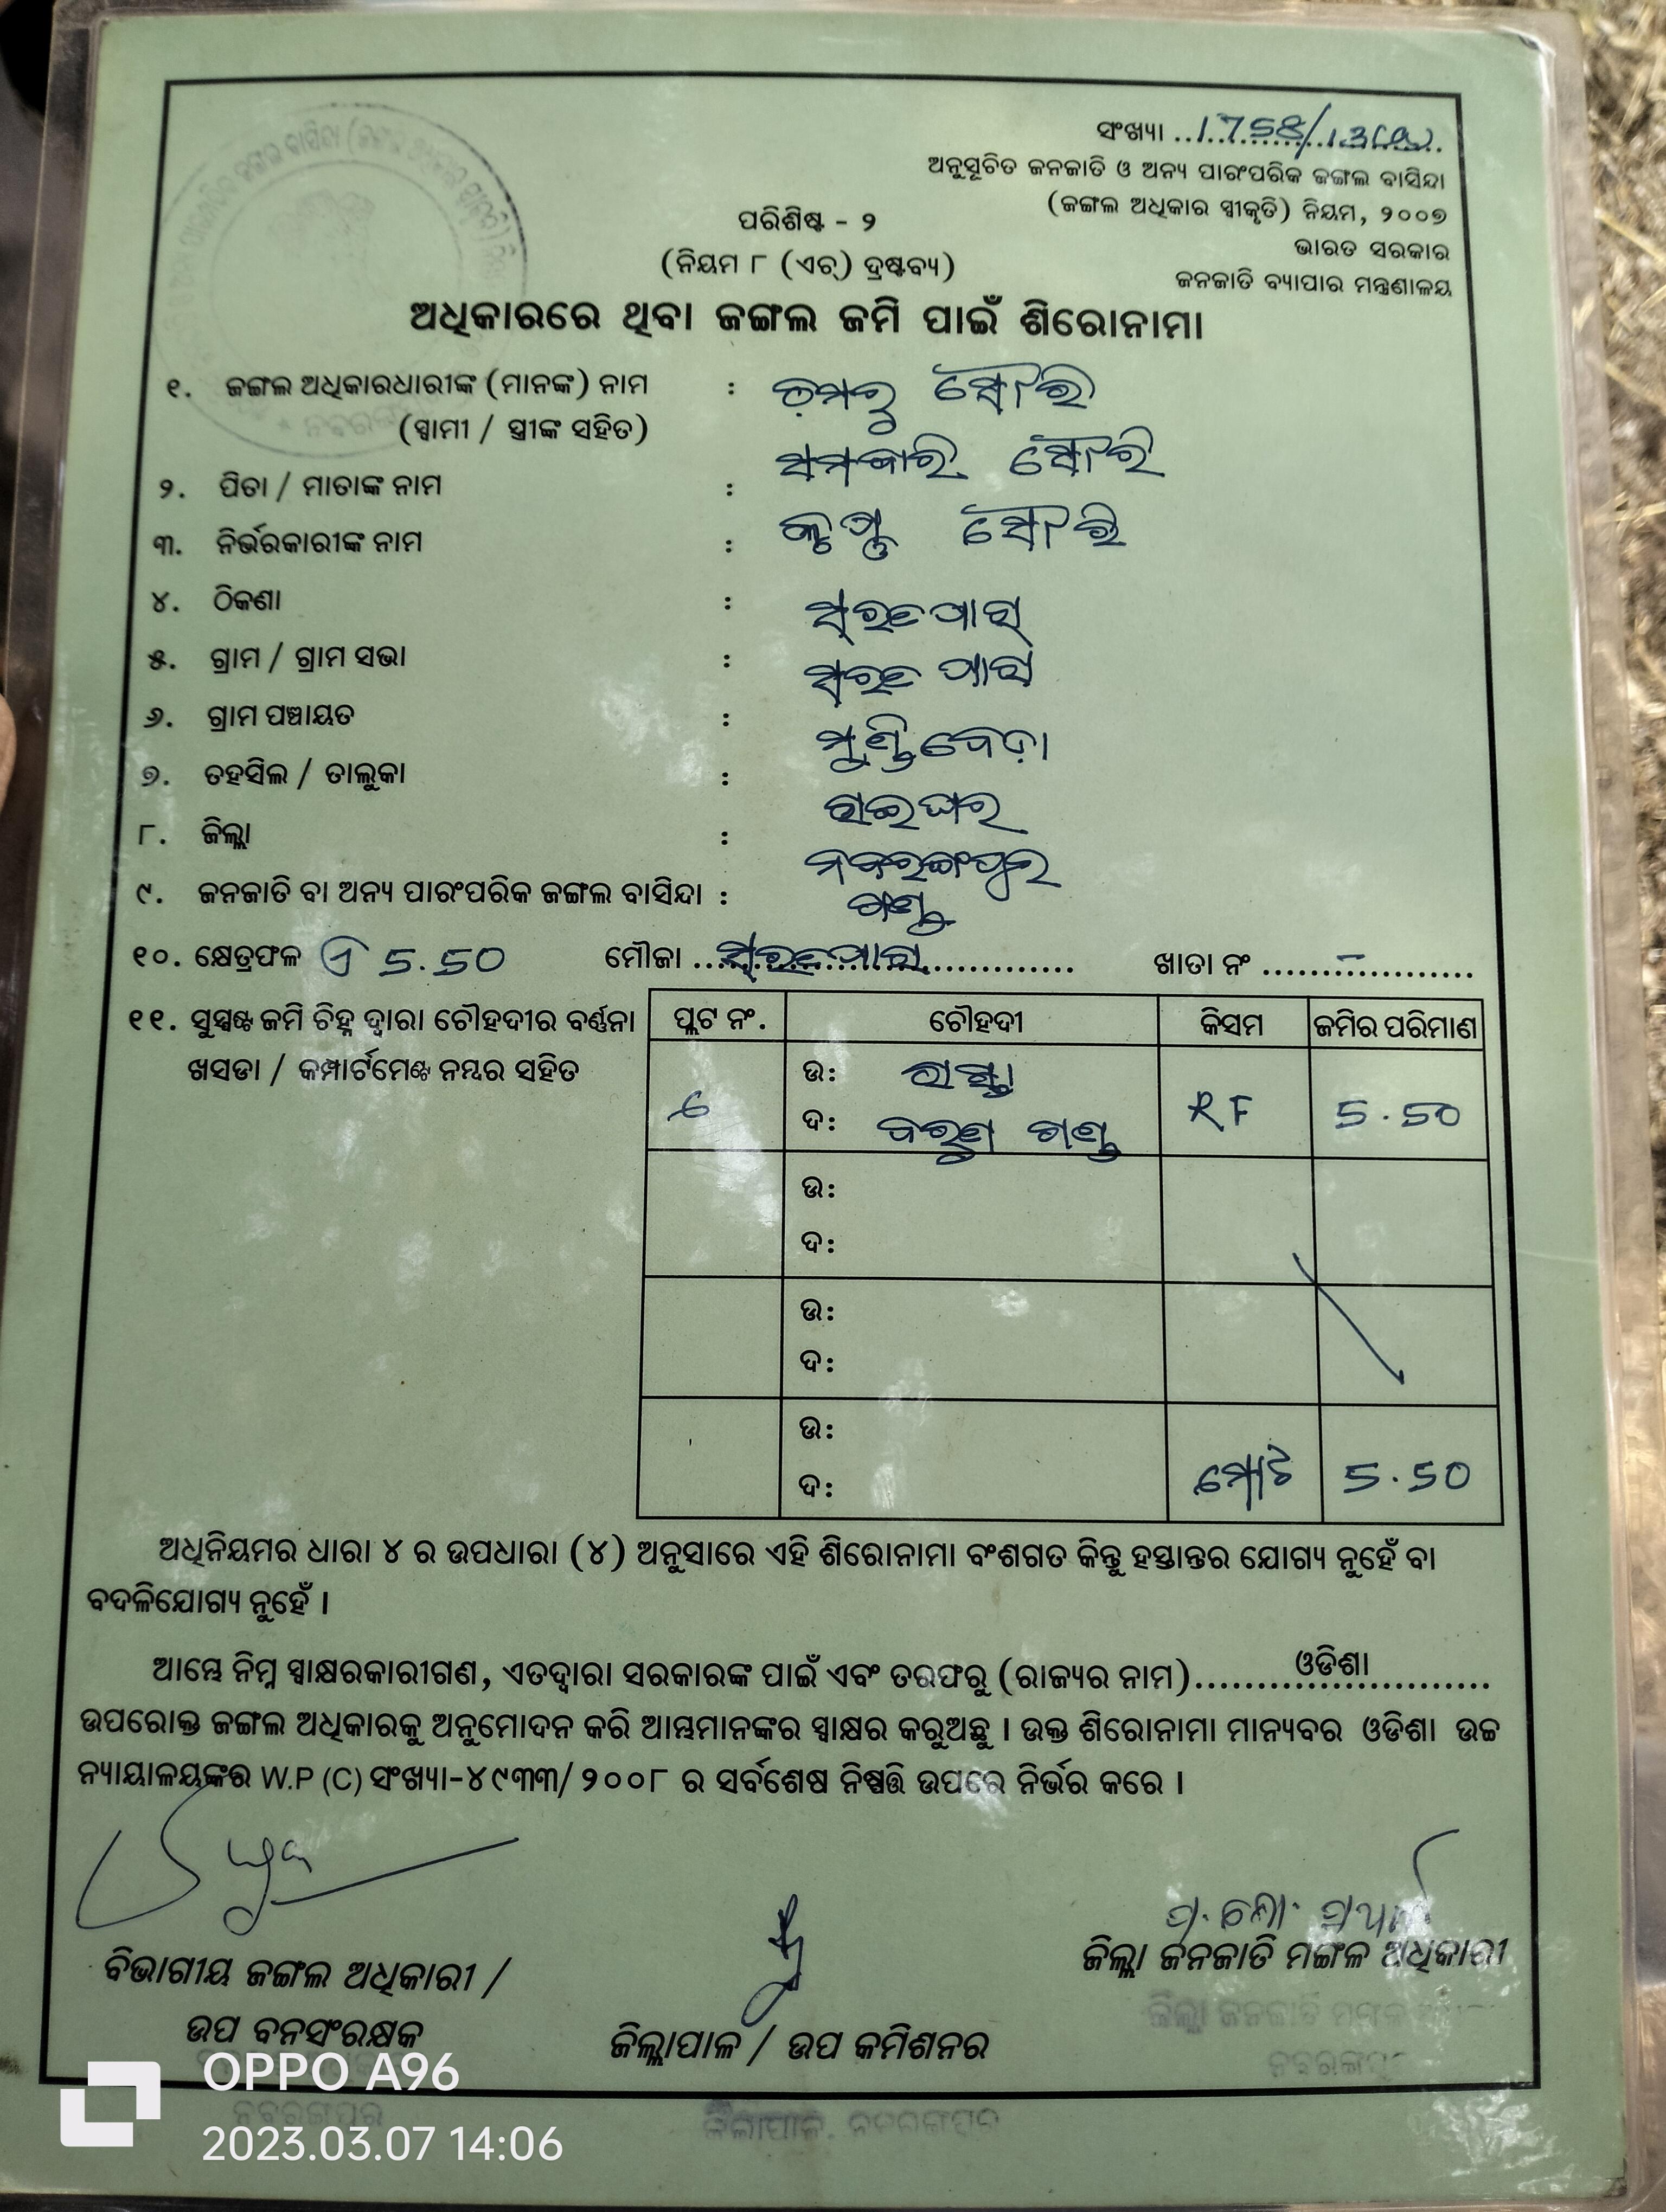 ସଂଖ୍ୟା ..1758/13(a)
ଅନୁସୂଚିତ ଜନଜାତି ଓ ଅନ୍ୟ ପାରଂପରିକ ଜଙ୍ଗଲ ବାସିନ୍ଦା
(ଜଙ୍ଗଲ ଅଧିକାର ସ୍ୱୀକୃତି) ନିୟମ, ୨୦୦୭
ଭାରତ ସରକାର
ଜନଜାତି ବ୍ୟାପାର ମନ୍ତ୍ରଣାଳୟ
ପରିଶିଷ୍ଟ - ୨
(ନିୟମ ୮ (ଏଚ୍) ଦ୍ରଷ୍ଟବ୍ୟ)
ଅଧିକାରରେ ଥିବା ଜଙ୍ଗଲ ଜମି ପାଇଁ ଶିରୋନାମା
୧. ଜଙ୍ଗଲ ଅଧିକାରଧାରୀଙ୍କ (ମାନଙ୍କ) ନାମ : ଡ଼ମରୁ ସୋରି
(ସ୍ୱାମୀ / ସ୍ତ୍ରୀଙ୍କ ସହିତ)
୨. ପିତା / ମାତାଙ୍କ ନାମ : ସମବାରି ସୋରି
୩. ନିର୍ଭରକାରୀଙ୍କ ନାମ : ସୋରି
୪. ଠିକଣା :
୫. ଗ୍ରାମ / ଗ୍ରାମ ସଭା :
୬. ଗ୍ରାମ ପଞ୍ଚାୟତ : ମୁଣ୍ଡିବେଡ଼ା
୭. ତହସିଲ / ତାଲୁକା : ରାଇଘର
୮. ଜିଲ୍ଲା : ନବରଙ୍ଗପୁର
୯. ଜନଜାତି ବା ଅନ୍ୟ ପାରଂପରିକ ଜଙ୍ଗଲ ବାସିନ୍ଦା : ଗଣ୍ଡ
୧୦. କ୍ଷେତ୍ରଫଳ ଏ 5.50 ମୌଜା ............ ଖାତା ନଂ ......–......
୧୧. ସୁସ୍ପଷ୍ଟ ଜମି ଚିହ୍ନ ଦ୍ୱାରା ଚୌହଦୀର ବର୍ଣ୍ଣନା
ଖସଡା / କମ୍ପାର୍ଟମେଣ୍ଟ ନମ୍ବର ସହିତ
ପ୍ଲଟ ନଂ. ଚୌହଦୀ କିସମ ଜମିର ପରିମାଣ
ଉ: ରାସ୍ତା
6 RF 5.50
ଦ: ବରୁଣ ଗଣ୍ଡ
ଉ:
ଦ:
ଉ:
ଦ:
ଉ:
ମୋଟ 5.50
ଦ:
ଅଧିନିୟମର ଧାରା ୪ ର ଉପଧାରା (୪) ଅନୁସାରେ ଏହି ଶିରୋନାମା ବଂଶଗତ କିନ୍ତୁ ହସ୍ତାନ୍ତର ଯୋଗ୍ୟ ନୁହେଁ ବା
ବଦଳିଯୋଗ୍ୟ ନୁହେଁ ।
ଆମ୍ଭେ ନିମ୍ନ ସ୍ୱାକ୍ଷରକାରୀଗଣ, ଏତଦ୍ୱାରା ସରକାରଙ୍କ ପାଇଁ ଏବଂ ତରଫରୁ (ରାଜ୍ୟର ନାମ)........ଓଡିଶା........
ଉପରୋକ୍ତ ଜଙ୍ଗଲ ଅଧିକାରକୁ ଅନୁମୋଦନ କରି ଆମ୍ଭମାନଙ୍କର ସ୍ୱାକ୍ଷର କରୁଅଛୁ । ଉକ୍ତ ଶିରୋନାମା ମାନ୍ୟବର ଓଡିଶା ଉଚ୍ଚ
ନ୍ୟାୟାଳୟଙ୍କର W.P (C) ସଂଖ୍ୟା-୪୯୩୩/୨୦୦୮ ର ସର୍ବଶେଷ ନିଷ୍ପତ୍ତି ଉପରେ ନିର୍ଭର କରେ ।
ବିଭାଗୀୟ ଜଙ୍ଗଲ ଅଧିକାରୀ /
ଉପ ବନସଂରକ୍ଷକ
ଜିଲ୍ଲାପାଳ / ଉପ କମିଶନର
ଜିଲ୍ଲା ଜନଜାତି ମଙ୍ଗଳ ଅଧିକାରୀ
ଜିଲ୍ଲା ଜନଜାତି ମଙ୍ଗଳ
ନବରଙ୍ଗପୁର
ଜିଲ୍ଲାପାଳ, ନବରଙ୍ଗପୁର
OPPO A96
2023.03.07 14:06